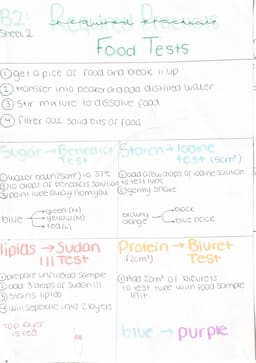 B2: Required Practicals
Sheet 2
Food Tests
① get a pice of food and break it up
② transfer into beaker and add distilled water
③ Stir mixture to dissolve food
④ filter out solid bits of food
Sugar → Benedicts Test
① water bath (5cm³) to 37°C
② 10 drops of benedicts solution to test tube
③ point tube away from you
blue
green (H)
yellow (M)
red (L)
Starch → Iodine test (5cm³)
① add few drops of iodine solution
② gently shake
orange
black
blue black
lipids → Sudan III Test
① prepare unfiltered sample
② add 3 drops of sudan III
③ stains lipids
④ will seperate into 2 layers
top layer
is red
Protein → Biuret Test
(2cm³)
① Add 2cm³ of bieurets
to test tube with food sample
in it.
blue → purple